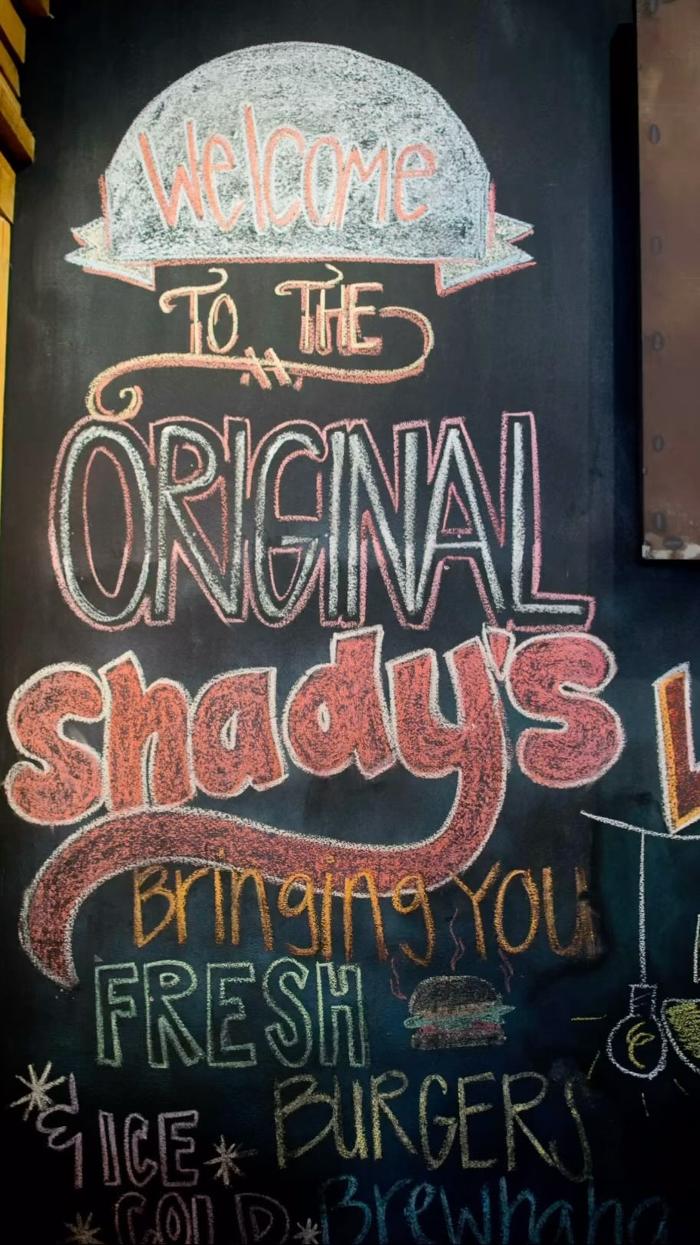 Welcome
TO THE
ORIGINAL
Shady's
Bringing YOU
FRESH
BURGERS
& ICE
COLD Brewhaha